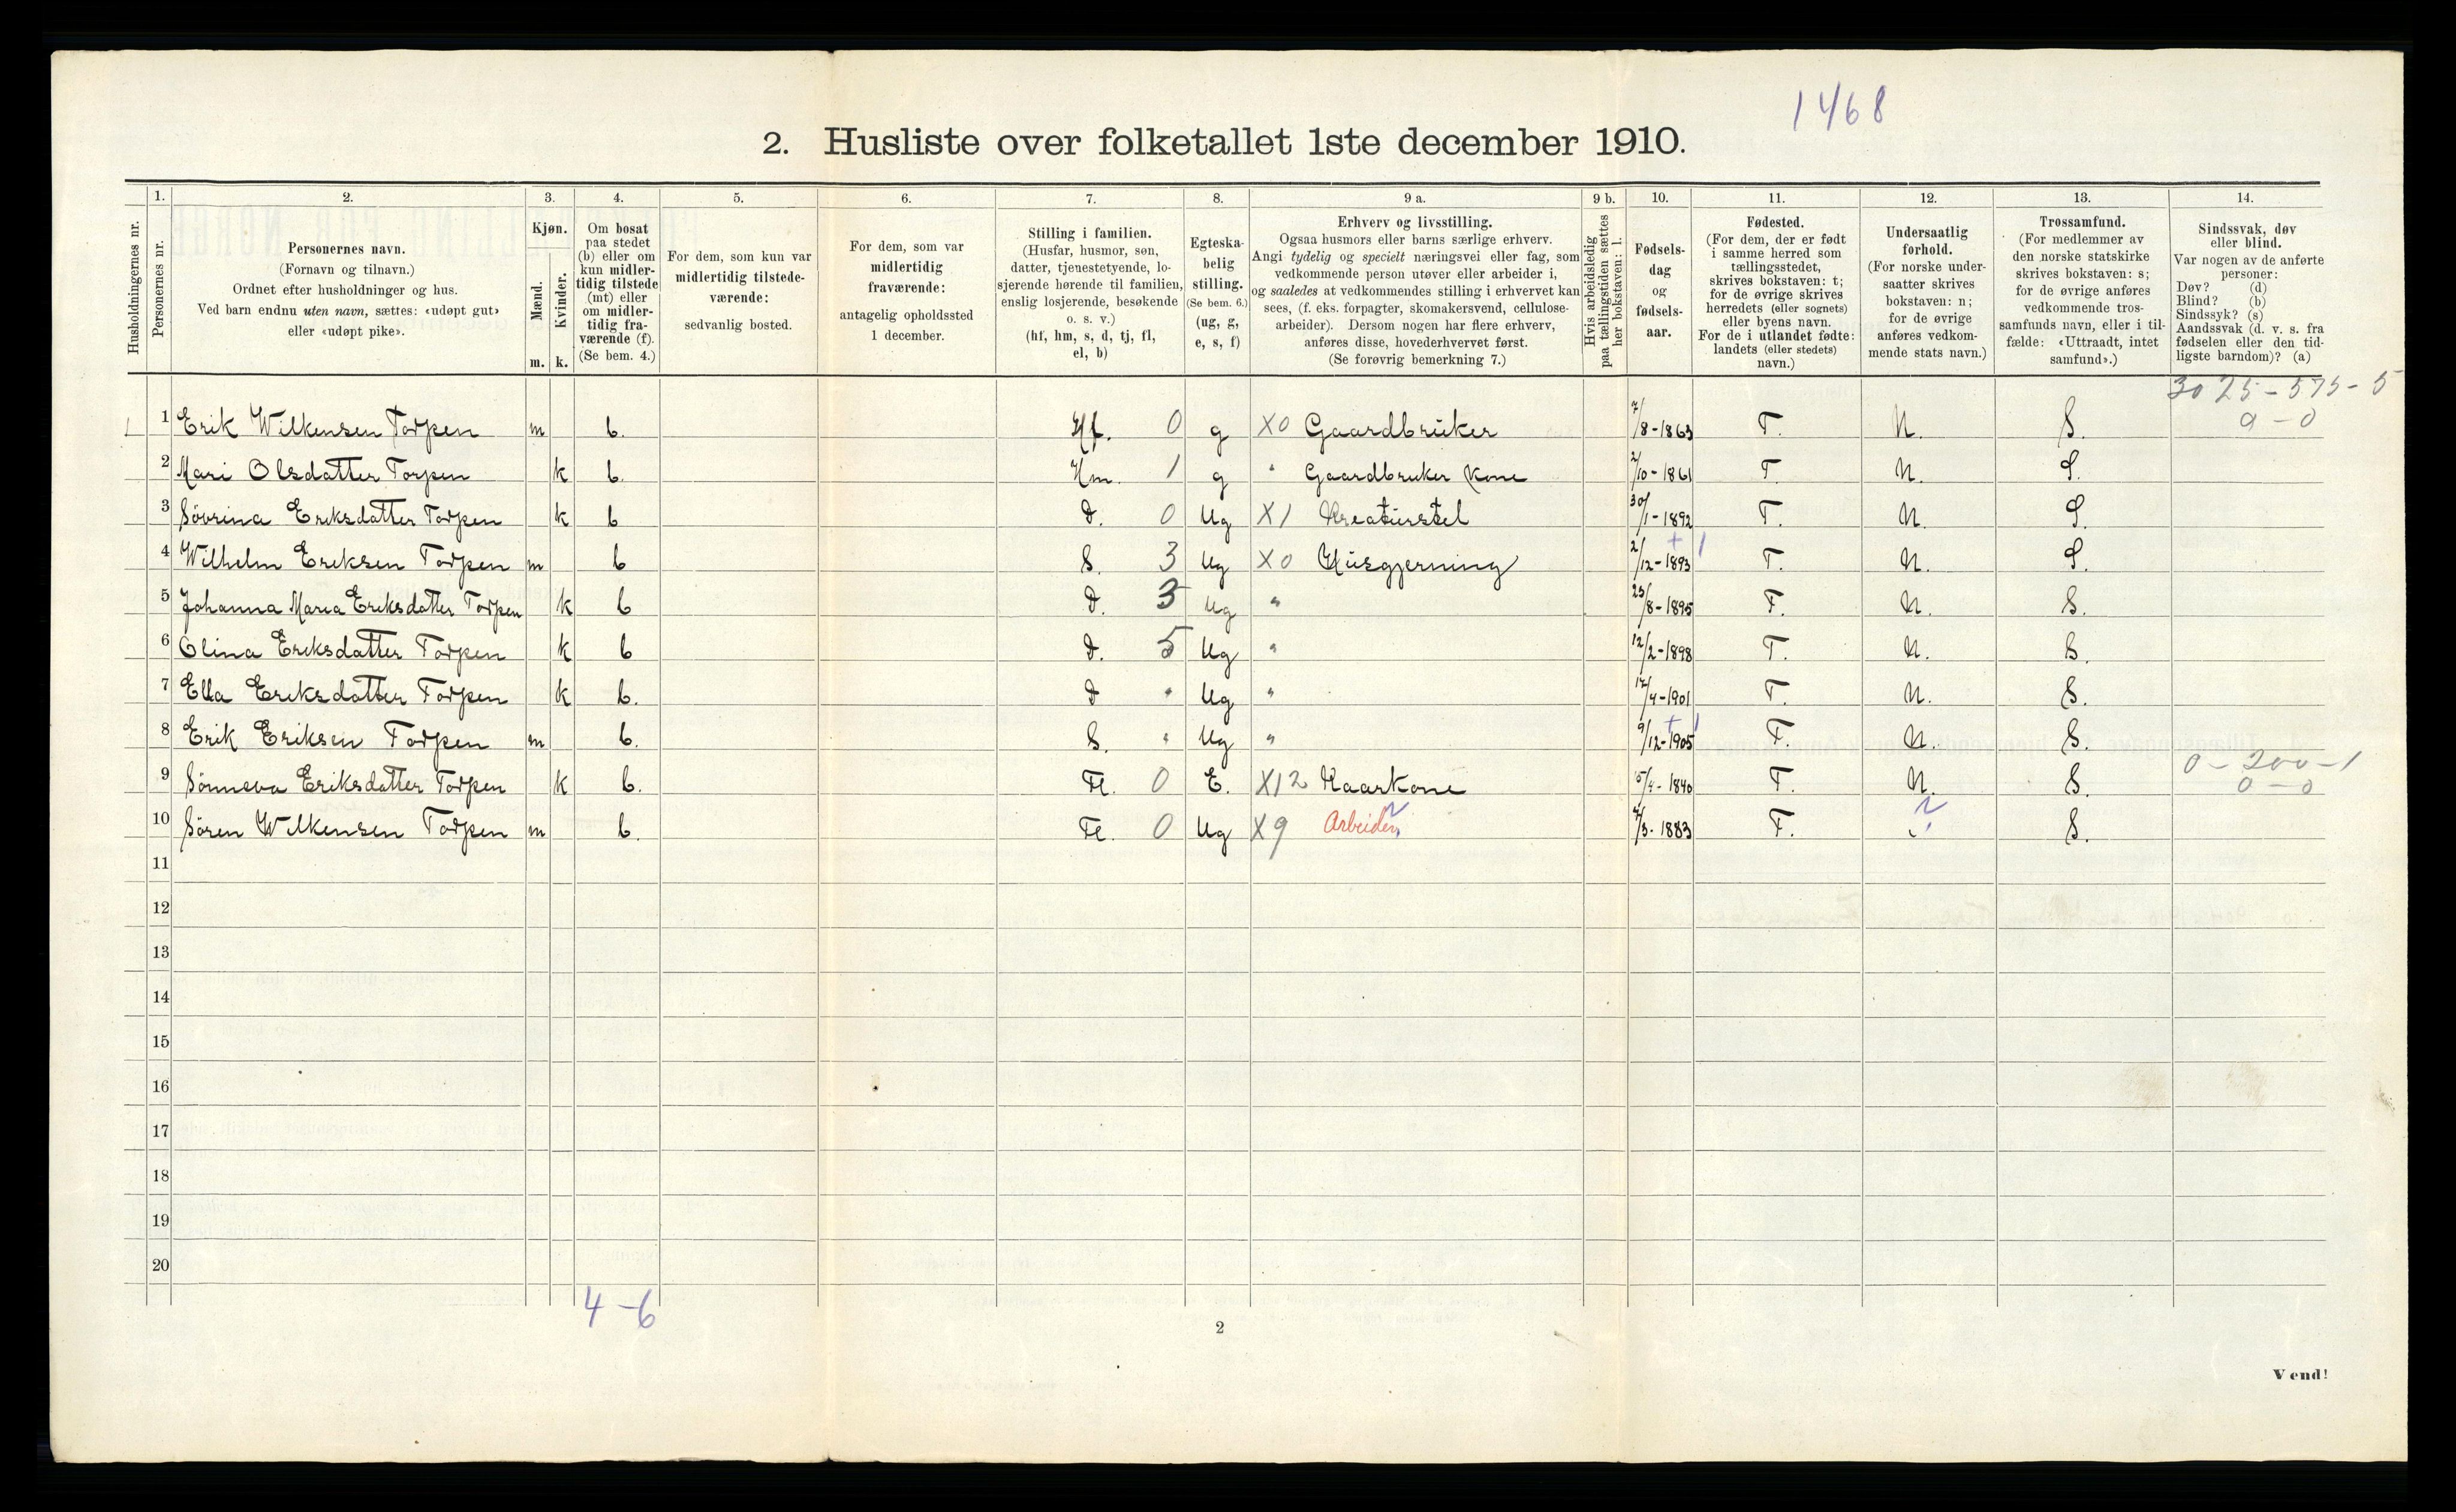 1468
2. Husliste over folketallet 1ste december 1910.
Husholdningernes nr.
1. Personernes nr.
2. Personernes navn.
(Fornavn og tilnavn.)
Ordnet efter husholdninger og hus.
Ved barn endnu uten navn, sættes: «udøpt gut»
eller «udøpt pike».
3. Kjøn.
Mænd. m.
Kvinder. k.
4. Om bosat
paa stedet
(b) eller om
kun midler-
tidig tilstede
(mt) eller
om midler-
tidig fra-
værende (f).
(Se bem. 4.)
5. For dem, som kun var
midlertidig tilstede-
værende:
sedvanlig bosted.
6. For dem, som var
midlertidig
fraværende:
antagelig opholdssted
1 december.
7. Stilling i familien.
(Husfar, husmor, søn,
datter, tjenestetyende, lo-
sjerende hørende til familien,
enslig losjerende, besøkende
o. s. v.)
(hf, hm, s, d, tj, fl,
el, b)
8. Egteska-
belig
stilling.
(Se bem. 6.)
(ug, g,
e, s, f)
9 a. Erhverv og livsstilling.
Ogsaa husmors eller barns særlige erhverv.
Angi tydelig og specielt næringsvei eller fag, som
vedkommende person utøver eller arbeider i,
og saaledes at vedkommendes stilling i erhvervet kan
sees, (f. eks. forpagter, skomakersvend, cellulose-
arbeider). Dersom nogen har flere erhverv,
anføres disse, hovederhvervet først.
(Se forøvrig bemerkning 7.)
9 b. Hvis arbeidsledig
paa tællingstiden sættes
her bokstaven: l.
10. Fødsels-
dag
og
fødsels-
aar.
11. Fødested.
(For dem, der er født
i samme herred som
tællingsstedet,
skrives bokstaven: t;
for de øvrige skrives
herredets (eller sognets)
eller byens navn.
For de i utlandet fødte:
landets (eller stedets)
navn.)
12. Undersaatlig
forhold.
(For norske under-
saatter skrives
bokstaven: n;
for de øvrige
anføres vedkom-
mende stats navn.)
13. Trossamfund.
(For medlemmer av
den norske statskirke
skrives bokstaven: s;
for de øvrige anføres
vedkommende tros-
samfunds navn, eller i til-
fælde: «Uttraadt, intet
samfund».)
14. Sindssvak, døv
eller blind.
Var nogen av de anførte
personer:
Døv? (d)
Blind? (b)
Sindssyk? (s)
Aandssvak (d. v. s. fra
fødselen eller den tid-
ligste barndom)? (a)
3025-575-5
1 1 Erik Wilkensen Torpen m b. Hf. 0 g X0 Gaardbruker 7/8-1863 T. N. S. a-0
2 Mari Olsdatter Torpen k b. Hm. 1 g " Gaardbruker Kone 2/10-1861 T. N. S.
3 Sövrina Eriksdatter Torpen k b D. 0 Ug X1 Kreaturstel 30/1-1892 T. N. S.
4 Wilhelm Eriksen Torpen m b S. 3 Ug X0 Husgjerning 2/12-1893 + 1 T. N. S.
5 Johanna Maria Eriksdatter Torpen k b D. 3 Ug " 23/8-1895 T. N. S.
6 Olina Eriksdatter Torpen k b D. 5 Ug " 12/2-1898 T. N. S.
7 Ella Eriksdatter Torpen k b. D " Ug " 17/4-1901 T. N. S.
8 Erik Eriksen Torpen m b. S. " Ug " 9/12-1905 + 1 T. N. S.
0-200-1
9 Sönneva Eriksdatter Torpen k b. Fl. 0 E. X12 Kaarkone 5/4-1840 T. N. S. 0-0
10 Sören Wilkensen Torpen m b. Fl. 0 Ug X9 Arbeider 4/3-1883 T. S.
11
12
13
14
15
16
17
18
19
20
4-6
2
Vend!